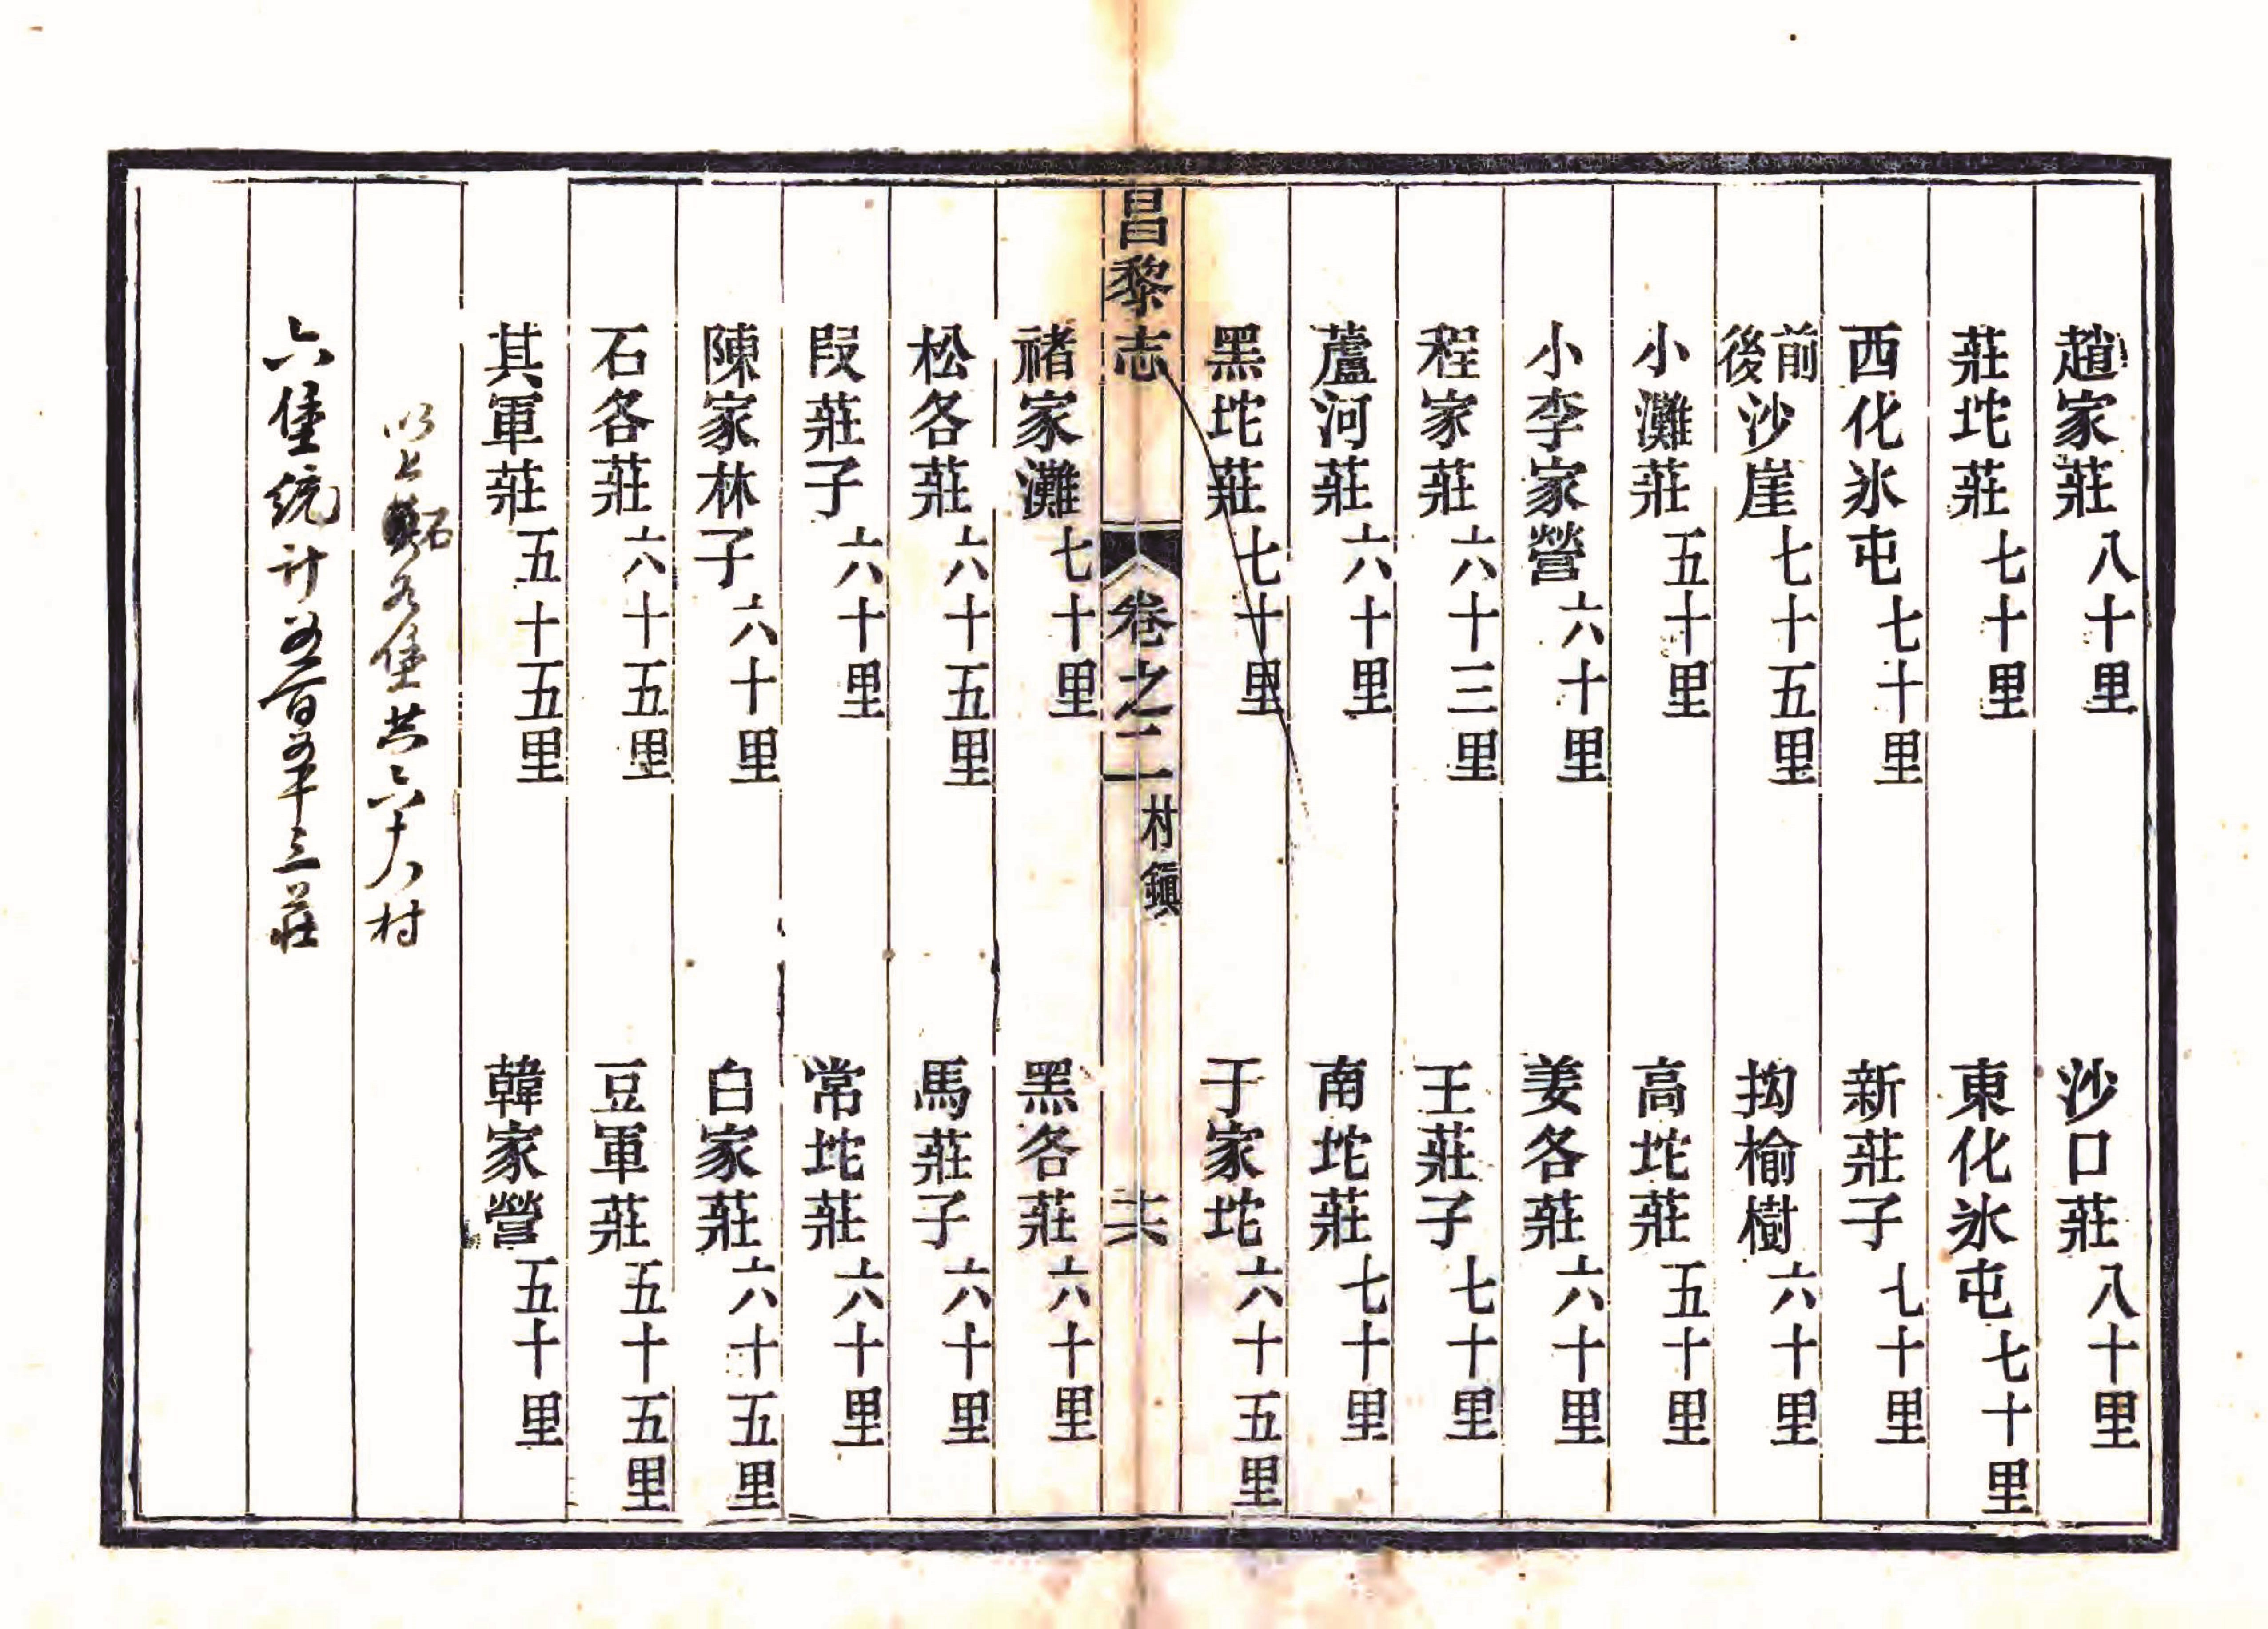 趙家莊八十里 沙口莊八十里
莊坨莊七十里 東化氷屯七十里
西化氷屯七十里 新莊子七十里
前後沙崖七十五里 抅榆樹六十里
小灘莊五十里 高坨莊五十里
小李家營六十里 姜各莊六十里
程家莊六十三里 王莊子七十里
蘆河莊六十里 南坨莊七十里
黑坨莊七十里 于家坨六十五里
昌黎志 卷之二 村鎮 十六
禇家灘七十里 黑各莊六十里
松各莊六十五里 馬莊子六十里
段莊子六十里 常坨莊六十里
陳家林子六十里 白家莊六十五里
石各莊六十五里 豆軍莊五十五里
其軍莊五十五里 韓家營五十里
以上石各堡共六十八村
六堡統计五百五十三莊